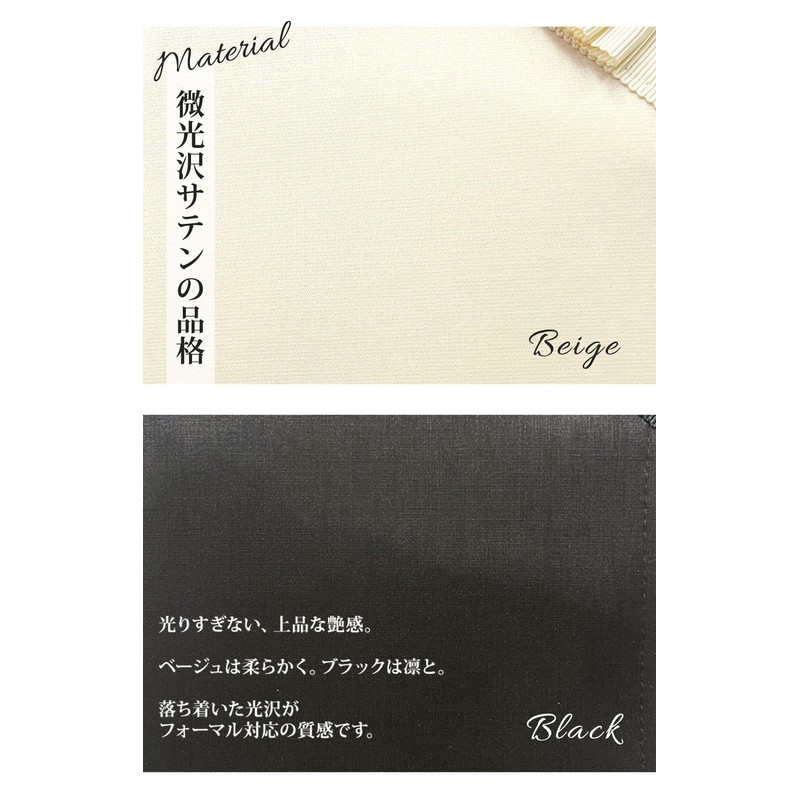 Material
微光沢サテンの品格
Beige
光りすぎない、上品な艶感。
ベージュは柔らかく。ブラックは凛と。
落ち着いた光沢が
フォーマル対応の質感です。
Black